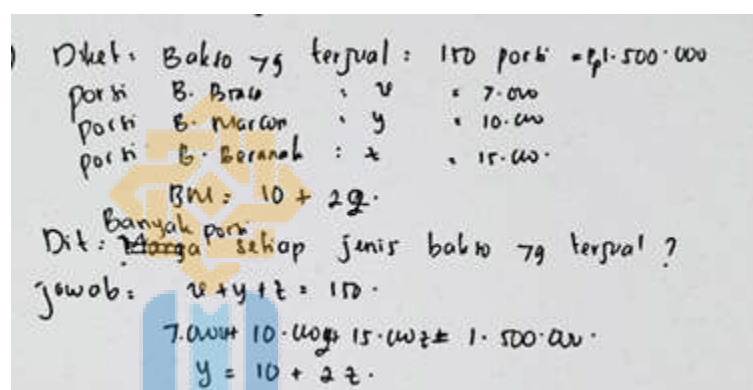 ) Diket: Bakso yg terjual : 150 porsi = Rp1.500.000
porsi B. Braco : x = 7.000
porsi B. Marcon : y = 10.000
porsi B. Beranak : z = 15.000.
BM : 10 + 2z.
Dit : Banyak porsi setiap jenis bakso yg terjual ?
jawab : x + y + z = 150.
7.000x + 10.000y + 15.000z = 1.500.000.
y = 10 + 2z.